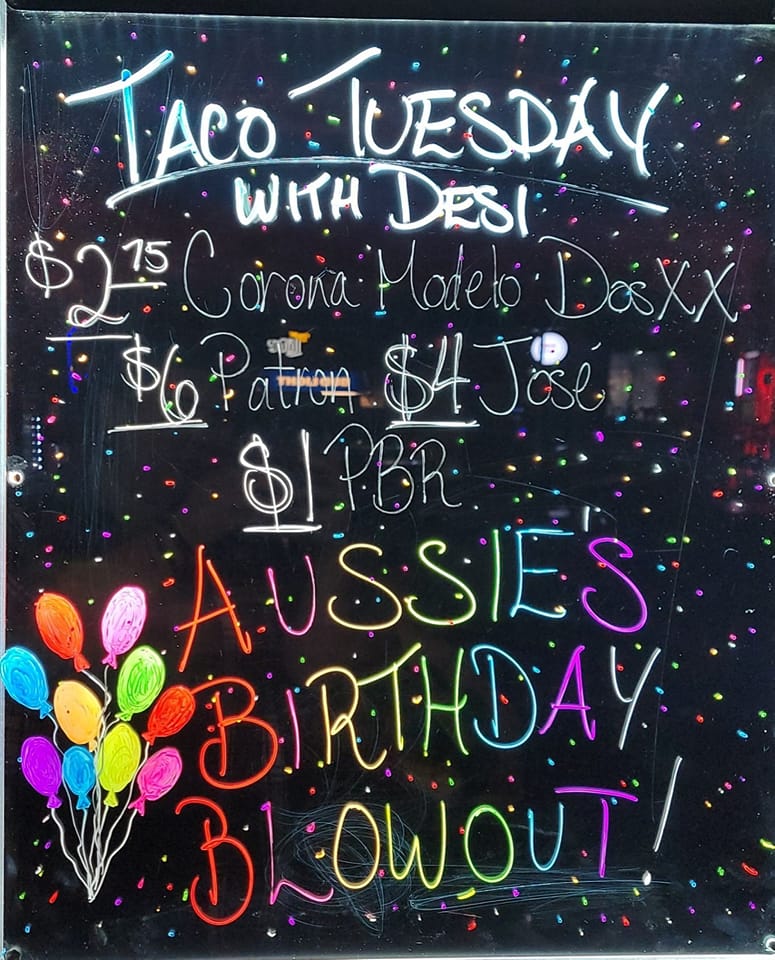 TACO TUESDAY
WITH DESI
$2.75 Corona Modelo Dos XX
$6 Patron $4 José
$1 PBR
AUSSIE'S
BIRTHDAY
BLOWOUT!